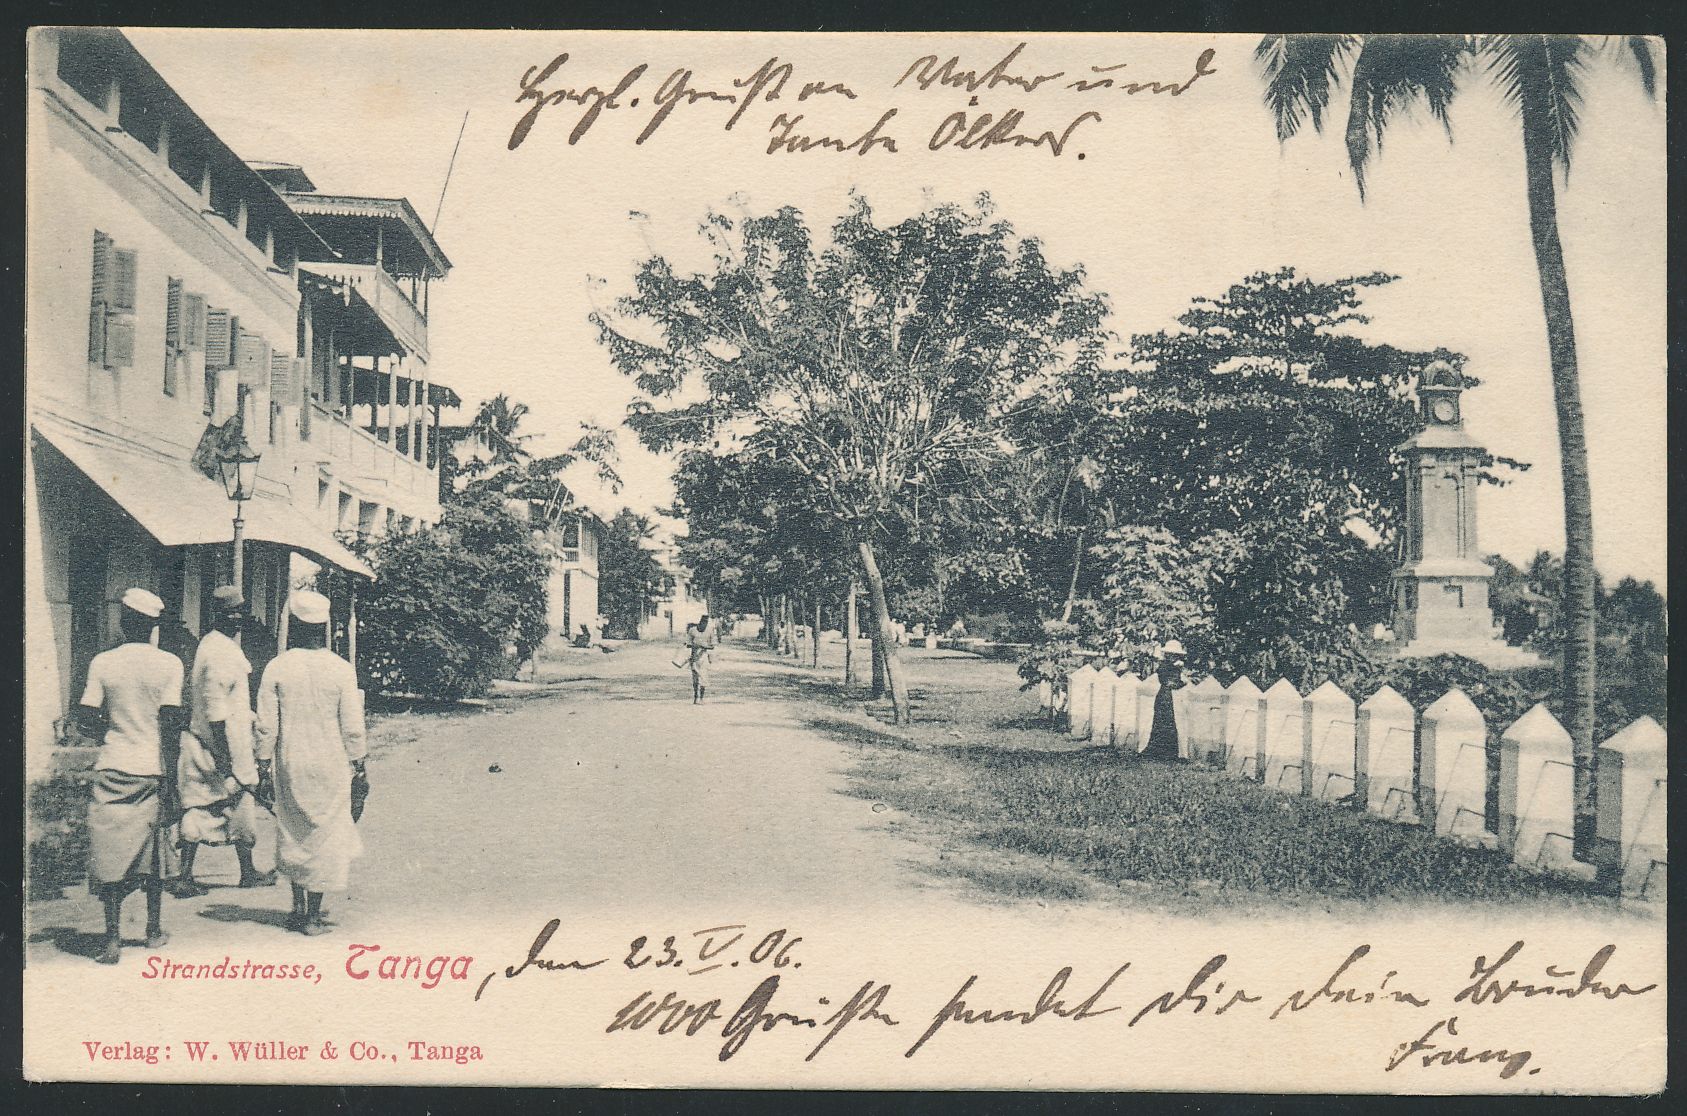 Herzl. Gruß an Vater und
Tante Ölkers.
Strandstrasse, Tanga, den 23. V. 06.
1000 Grüße sendet dir dein Bruder
Franz.
Verlag: W. Wüller & Co., Tanga